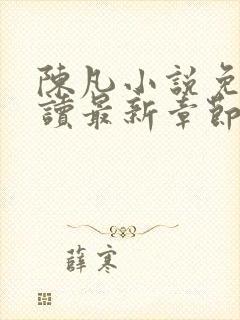 陳凡小說免
讀最新章節
薛寒